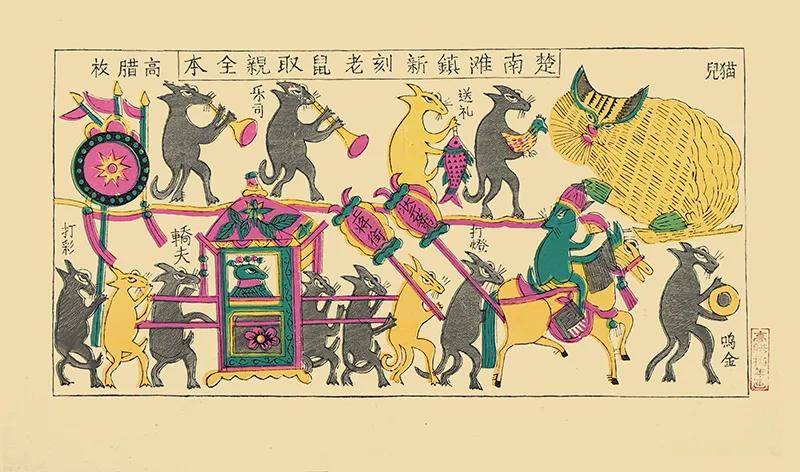 猫兒
楚南滩鎮新刻老鼠取親全本
高腊枚
送礼
乐司
鸣金
打燈
轎夫
打彩